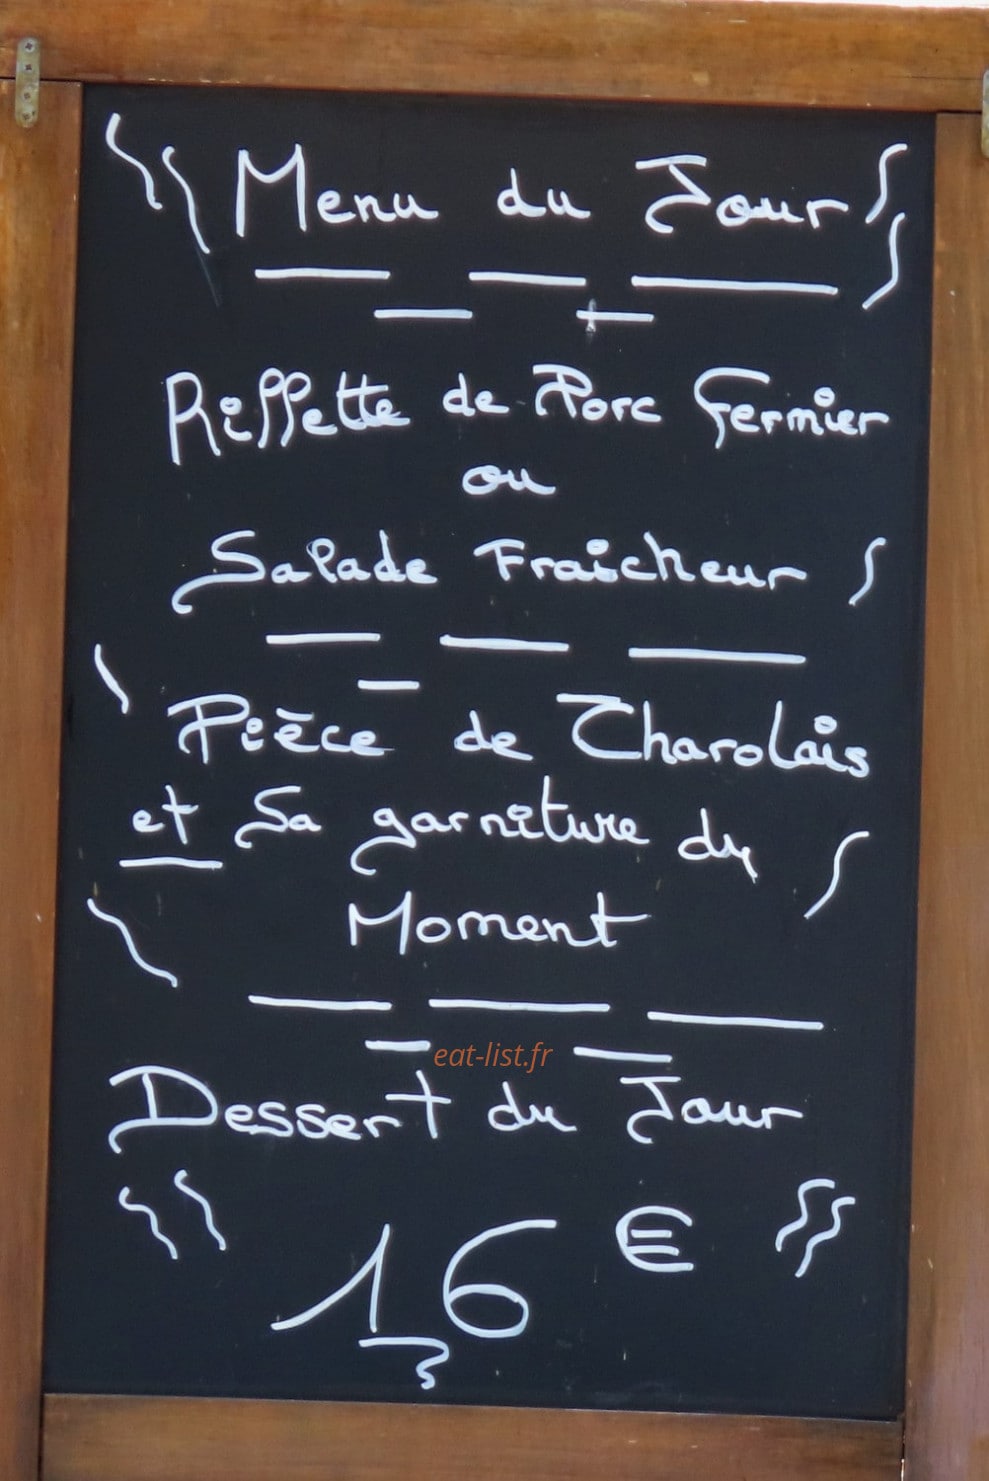 Menu du Jour
Rillette de Porc Fermier
ou
Salade Fraicheur
Pièce de Charolais
et Sa garniture du
Moment
eat-list.fr
Dessert du Jour
16 €